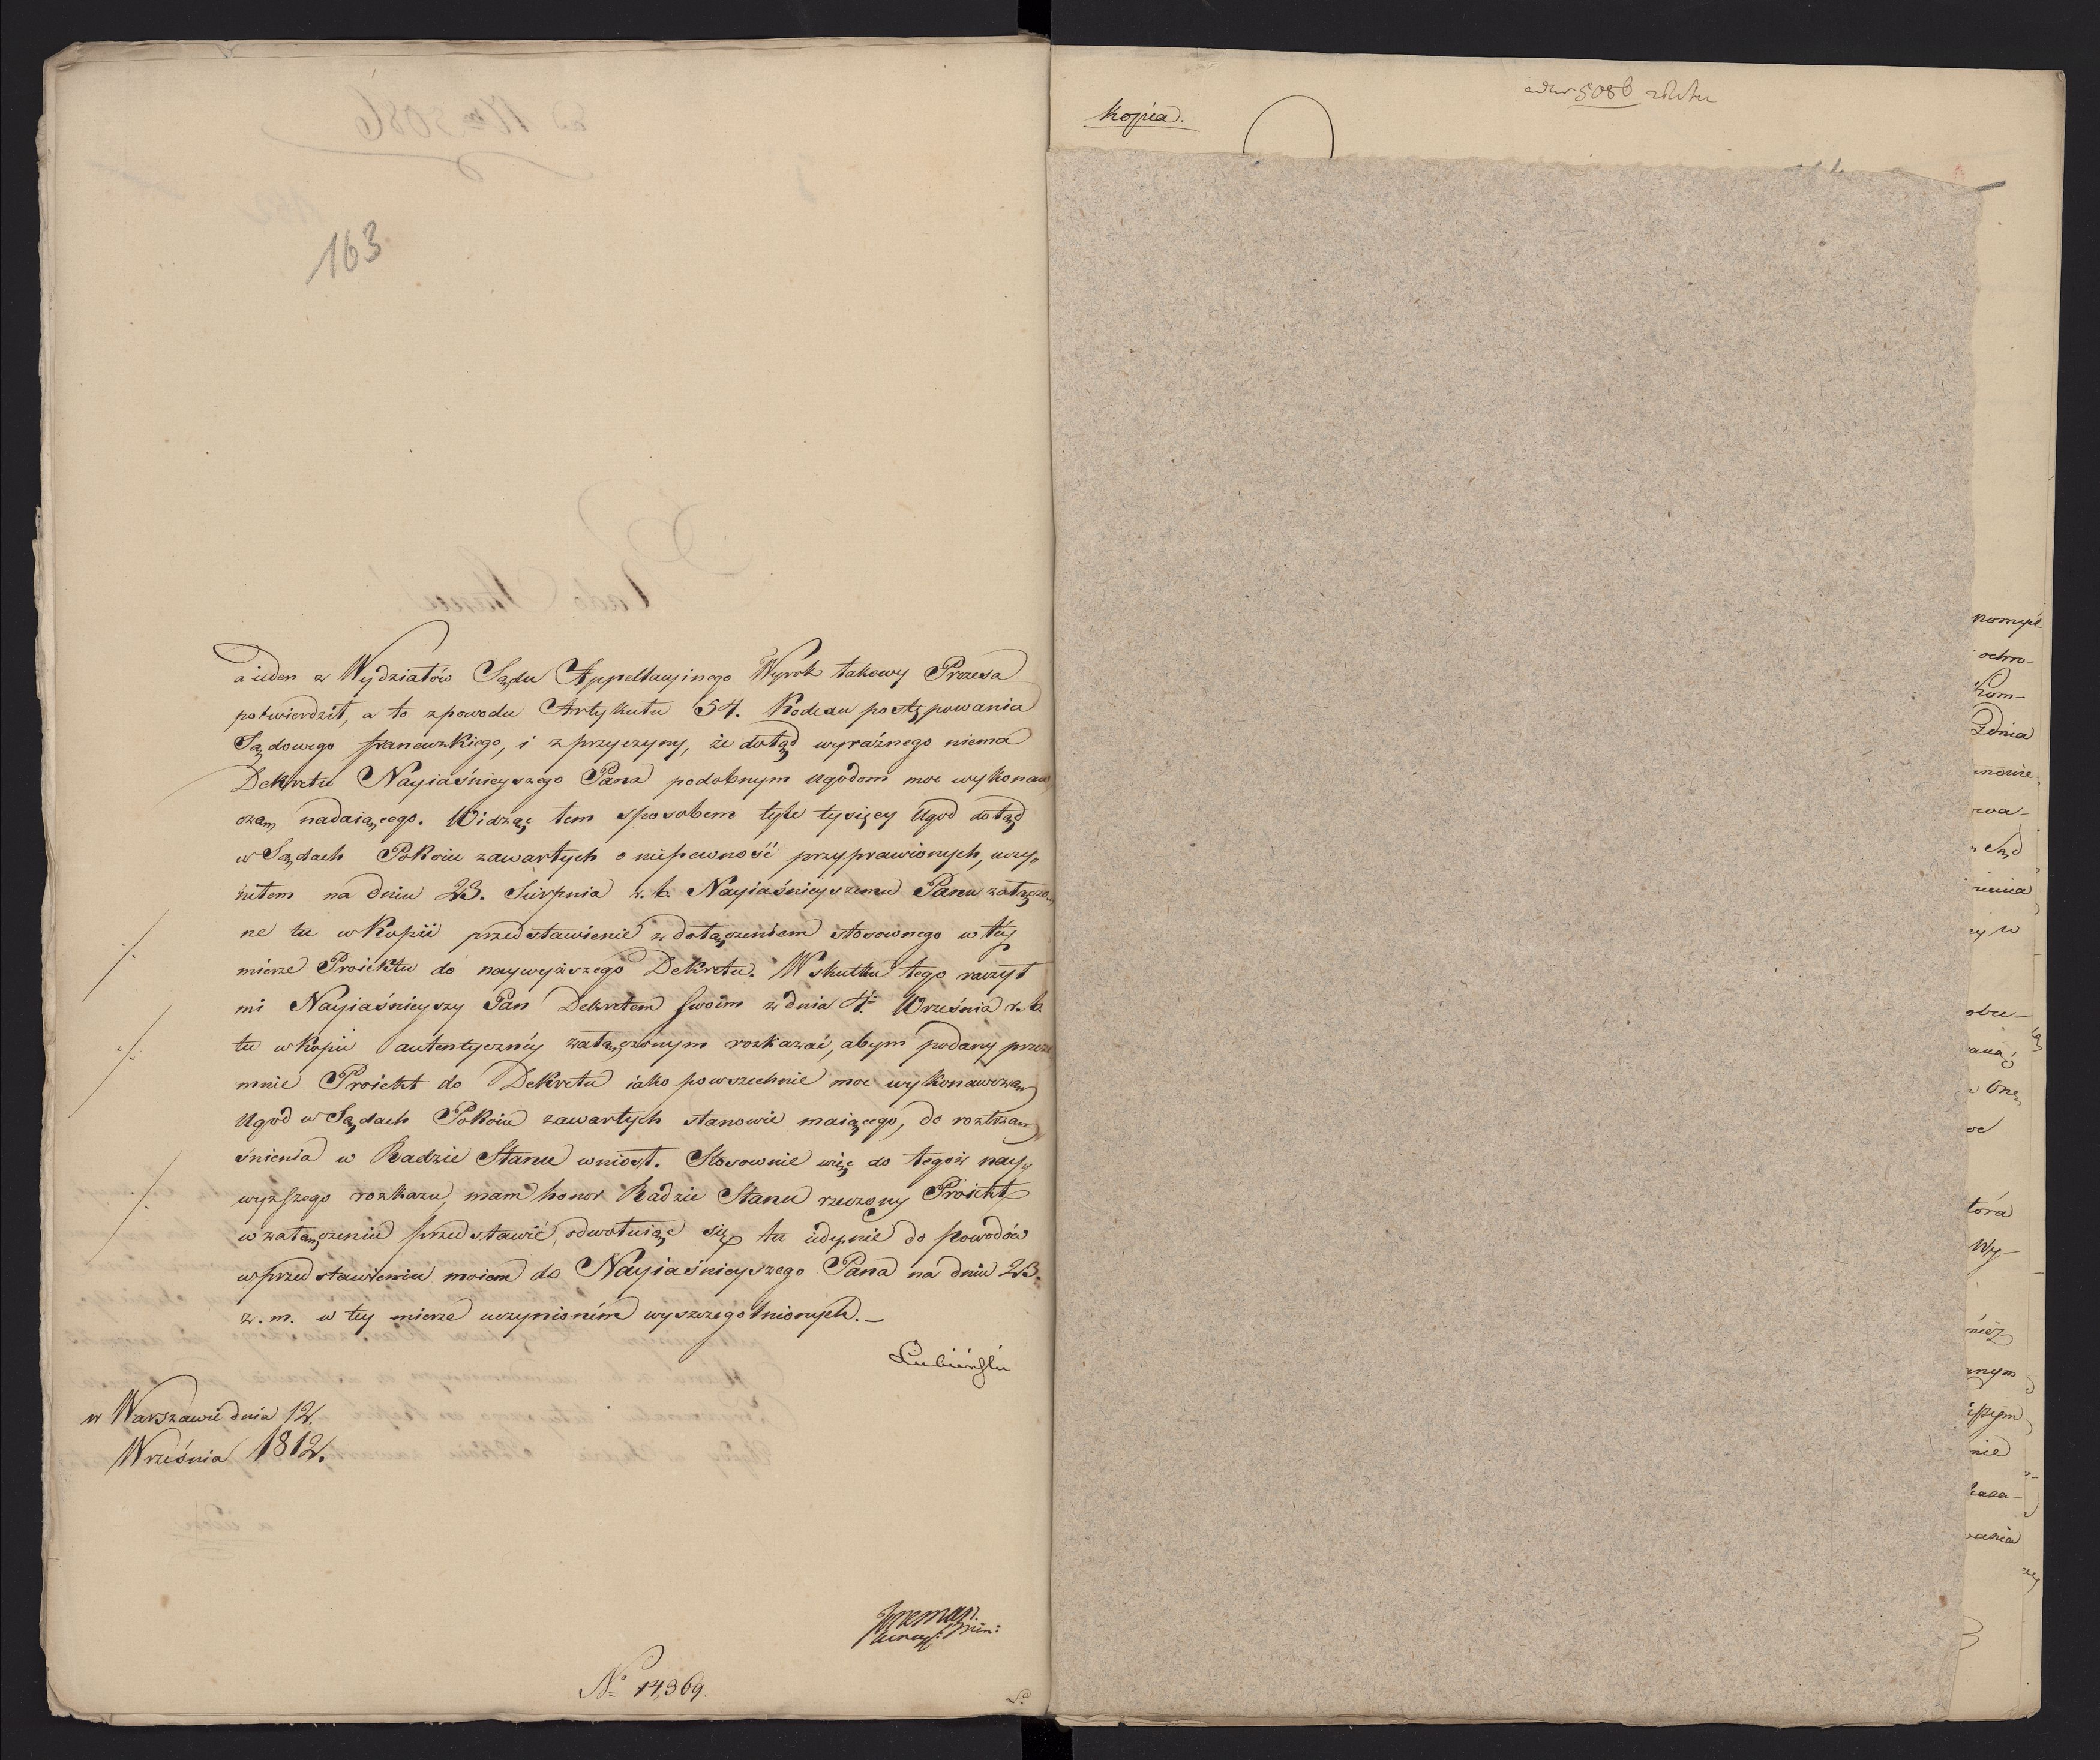 163
a ieden z Wydziałów Sądu Appellacyinego Wyrok takowy Prezesa
potwierdził, a to z powodu Artykułu 54. Kodexu postępowania
Sądowego francuzkiego, i z przyczyny, że dotąd wyraźnego niema
Dekretu Nayiaśnieyszego Pana podobnym Ugodom moc wykonaw
czą nadaiącego. Widząc tem sposobem tyle tysięcy Ugod dotąd
w Sądach Pokoiu zawartych o niepewność przyprawionych, uczy„
niłem na dniu 23. Sierpnia r. b. Nayiaśnieyszemu Panu załączo„
ne tu w Kopii przedstawienie z dołączeniem stosownego w téy
mierze Proiektu do naywyższego Dekretu. W skutku tego raczył
mi Nayiaśnieyszy Pan Dekretem swoim z dnia 4. Września r. b.
tu w Kopii autentycznéy załączonym rozkazać, abym podany przeze
mnie Proiekt do Dekretu iako powszechnie moc wykonawczą
Ugod w Sądach Pokoiu zawartych stanowić maiącego, do roztrzą
śnienia w Radzie Stanu wniosł. Stosownie więc do tegoż nay„
wyższego rozkazu, mam honor Radzie Stanu rzeczony Proiekt
w załączeniu przedstawić, odwołuiąc się tu iedynie do powodów
w przedstawieniu moiem do Nayiaśnieyszego Pana na dniu 23.
z. m. w téy mierze uczynioném wyszczegolnionych.—
Lubieński
w Warszawie dnia 12.
Września 1812.
No 14,369.
Kopia.
5086
ochro-
Kom-
Zdnia
rwa-
Sąd
tóra
Wy-